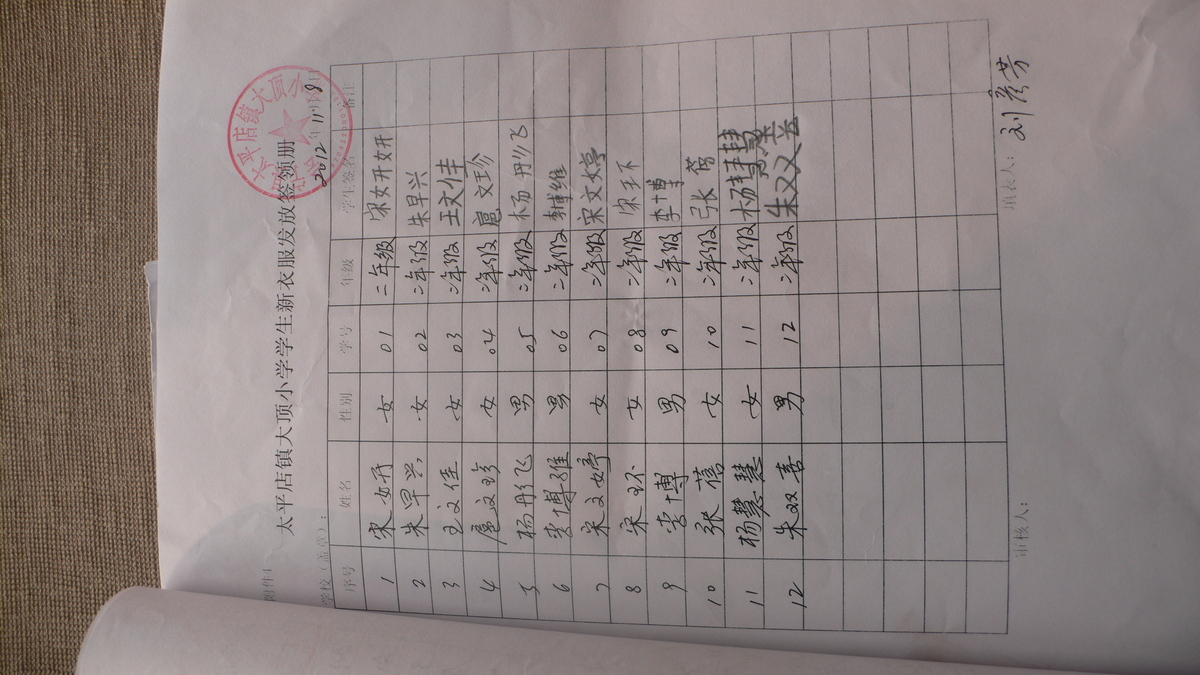 附件1
太平店镇大顶小学学生新衣服发放签领册
学校(盖章): 2012年11月8日
序号 姓名 性别 学号 年级 学生签名 备注
1 宋妍 女 01 二年级
2 朱早兴 女 02 二年级 朱早兴
3 王文佳 女 03 二年级 王文佳
4 扈文珍 女 04 二年级 扈文珍
5 杨丹飞 男 05 二年级 杨丹飞
6 李博维 男 06 二年级
7 宋文婷 女 07 二年级 宋文婷
8 宋环 女 08 二年级 宋环
9 李博 男 09 二年级 李博
10 张蓓 女 10 二年级 张
11 杨慧慧 女 11 二年级 杨慧慧
12 朱双喜 男 12 二年级
审核人: 填表人: 刘彦芳
太平店镇大顶小